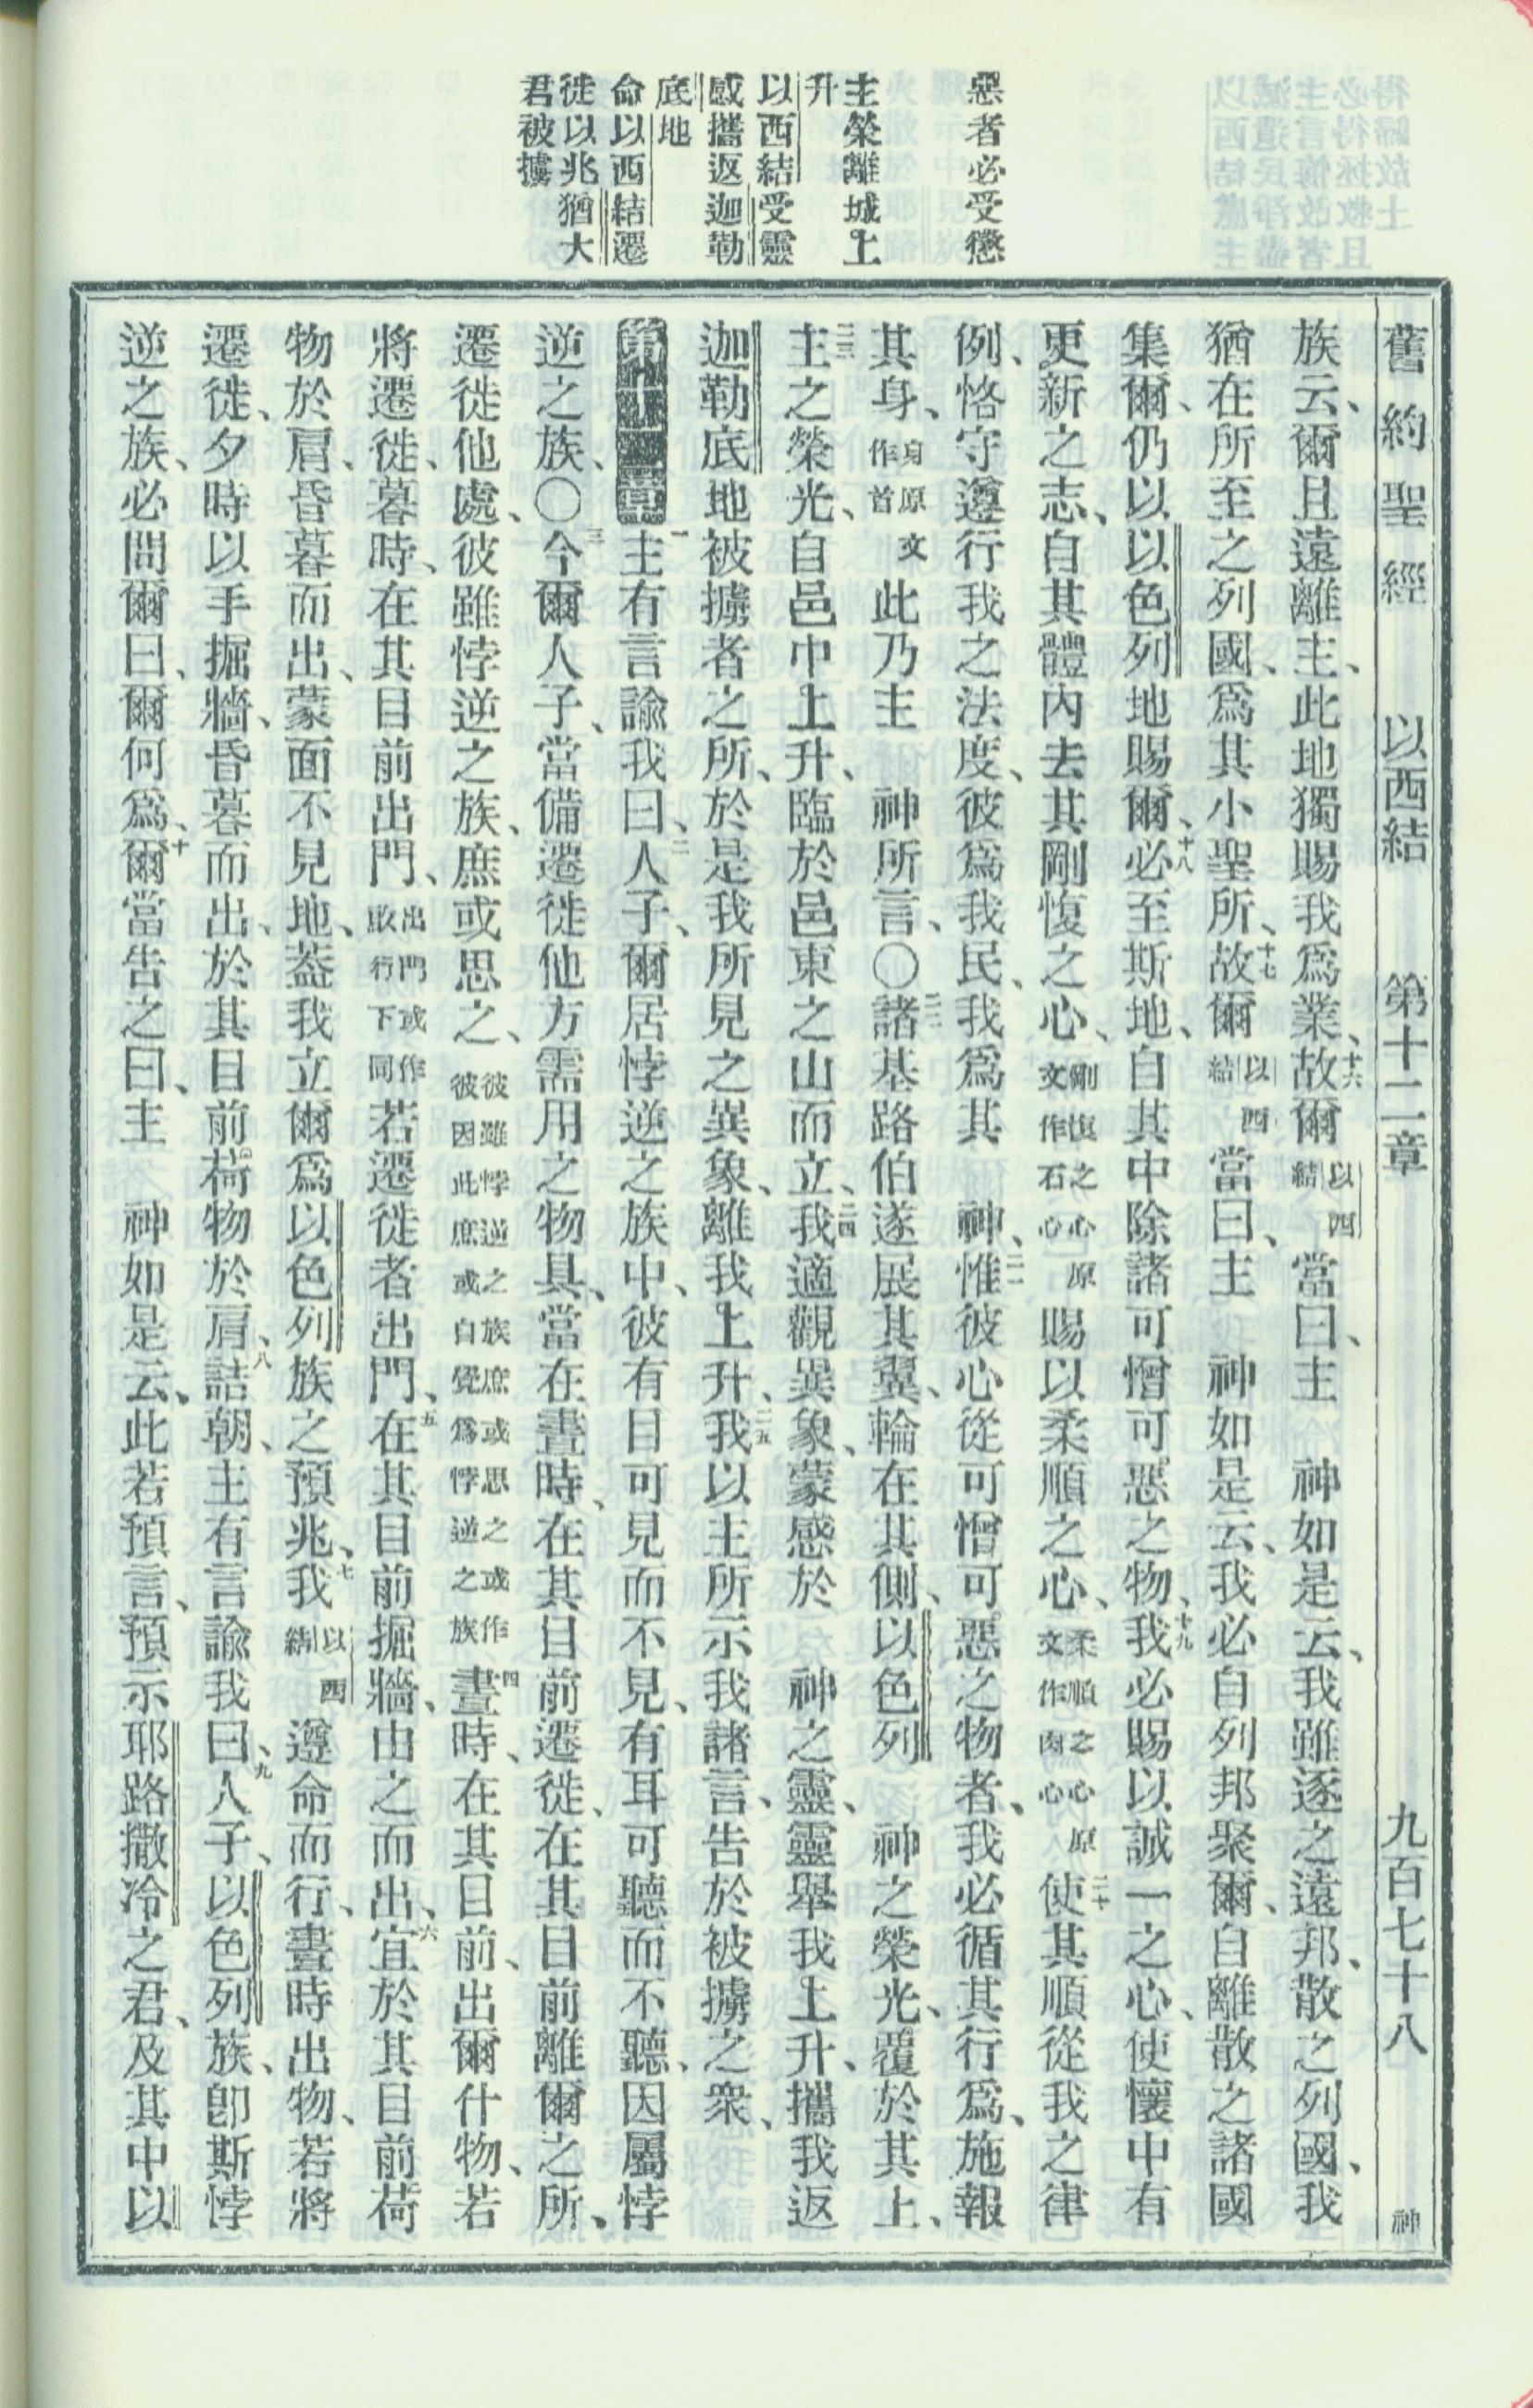 舊約聖經 以西結 第十二章 九百七十八 神
惡者必受懲
主榮離城上
升
以西結受靈
感攜返迦勒
底地
命以西結遷
徙以兆猶大
君被擄
族云、爾且遠離主、此地獨賜我爲業、十六故爾以西結當曰、主 神如是云、我雖逐之遠邦、散之列國、我
猶在所至之列國、爲其小聖所、十七故爾以西結當曰、主 神如是云、我必自列邦聚爾、自離散之諸國
集爾、仍以以色列地賜爾、十八必至斯地、自其中除諸可憎可惡之物、十九我必賜以誠一之心、使懷中有
更新之志、自其體內去其剛愎之心、剛愎之心原文作石心賜以柔順之心、柔順之心原文作肉心二十使其順從我之律
例、恪守遵行我之法度、彼爲我民、我爲其 神、二一惟彼心從可憎可惡之物者、我必循其行爲、施報
其身、身原文作首此乃主 神所言、〇二二諸基路伯遂展其翼、輪在其側、以色列 神之榮光、覆於其上、
二三主之榮光、自邑中上升、臨於邑東之山而立、二四我適觀異象、蒙感於 神之靈、靈舉我上升、攜我返
迦勒底地被擄者之所、於是我所見之異象、離我上升、二五我以主所示我諸言、告於被擄之衆、
第十二章 一主有言諭我曰、二人子、爾居悖逆之族中、彼有目可見而不見、有耳可聽而不聽、因屬悖
逆之族、〇三今爾人子、當備遷徙他方需用之物具、當在晝時、在其目前遷徙、在其目前離爾之所、
遷徙他處、彼雖悖逆之族、庶或思之、彼雖悖逆之族庶或思之或作彼因此庶或自覺爲悖逆之族四晝時、在其目前、出爾什物、若
將遷徙、暮時、在其目前出門、出門或作敢行下同若遷徙者出門、五在其目前掘牆、由之而出、六宜於其目前荷
物於肩、昏暮而出、蒙面不見地、蓋我立爾爲以色列族之預兆、七我以西結遵命而行、晝時出物、若將
遷徙、夕時以手掘牆、昏暮而出、於其目前荷物於肩、八詰朝、主有言諭我曰、九人子、以色列族、卽斯悖
逆之族、必問爾曰、爾何爲、十爾當告之曰、主 神如是云、此若預言、預示耶路撒冷之君、及其中以